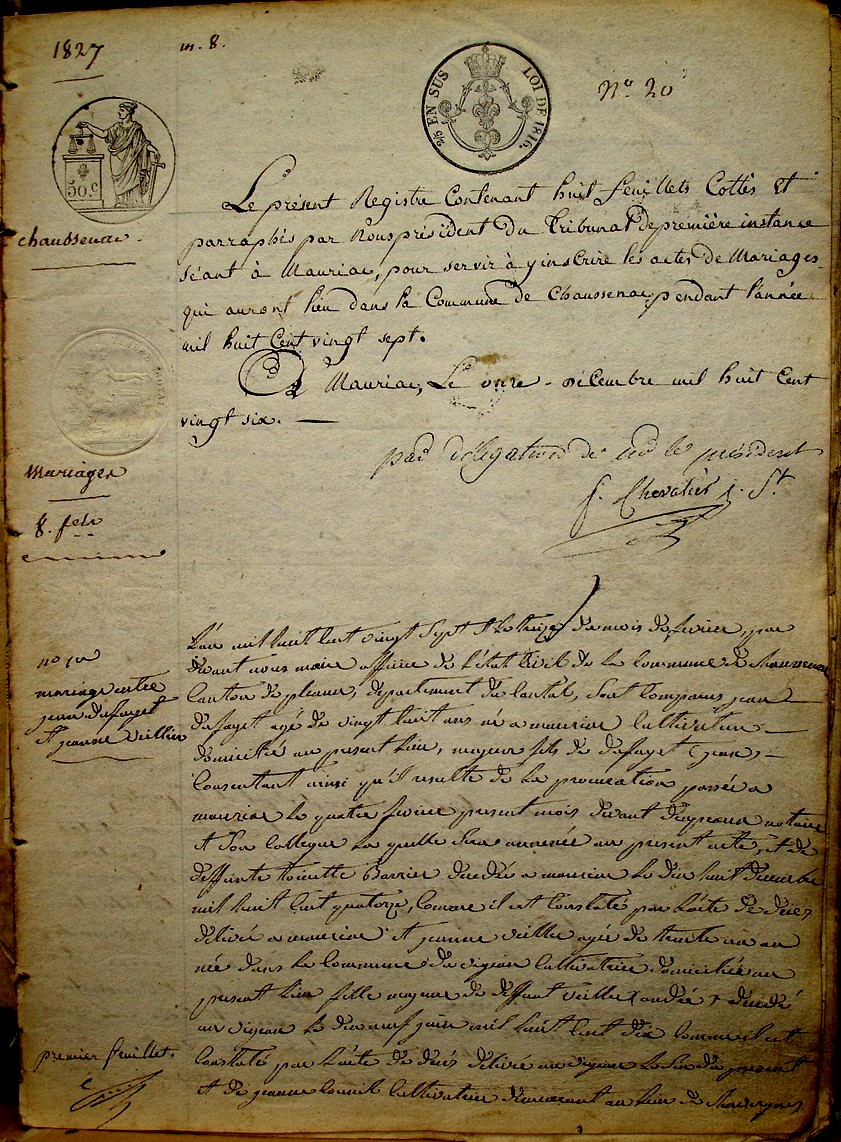 1827
m. 8.
2/5 EN SUS LOI DE 1816.
N° 20
50.c
chaussenac
Le présent Registre Contenant huit feuillets Cottés Et
parraphés par Nous président du Tribunal de première instance
séant à Mauriac, pour servir à y inscrire les actes de Mariages
qui auront lieu dans la Commune de Chaussenac pendant l'année
mil huit Cent vingt sept.
A Mauriac, Le onze décembre mil huit Cent
vingt six.
par délégation de le président
Chevalier j. St
Mariages
8. fets
L'an mil huit cent vingt sept et le treize du mois de fevrier, par
devant nous maire officier de l'état civil de la commune de chaussenac
Canton de pleaux, département du Cantal, sont comparus jean
dafayet agé de vingt huit ans né a mauriac Cultivateur
domicilié au present lieu, majeur fils de dafayet jean,
Consentant ainsi qu'il resulte de la procuration passée a
mauriac le quatre fevrier present mois devant notaire
et son collegue la quelle sera annexée au present acte, et de
deffunte toinette Barrier décédée a mauriac le dix huit decembre
mil huit cent quatorze, comme il est constaté par l'acte de décès
délivré a mauriac et jeanne veillier agée de trente un an
née dans la commune du vigean Cultivatrice domiciliée au
present lieu fille majeure de deffunt veillier andré décédé
au vigean le dix neuf juin mil huit cent dix comme il est
Constaté par l'acte de décès délivré au vigean le six du present
et de jeanne Cultivatrice demeurant au lieu de
no 1er
mariage entre
jean dafayet
et jeanne veillier
premier feuillet.